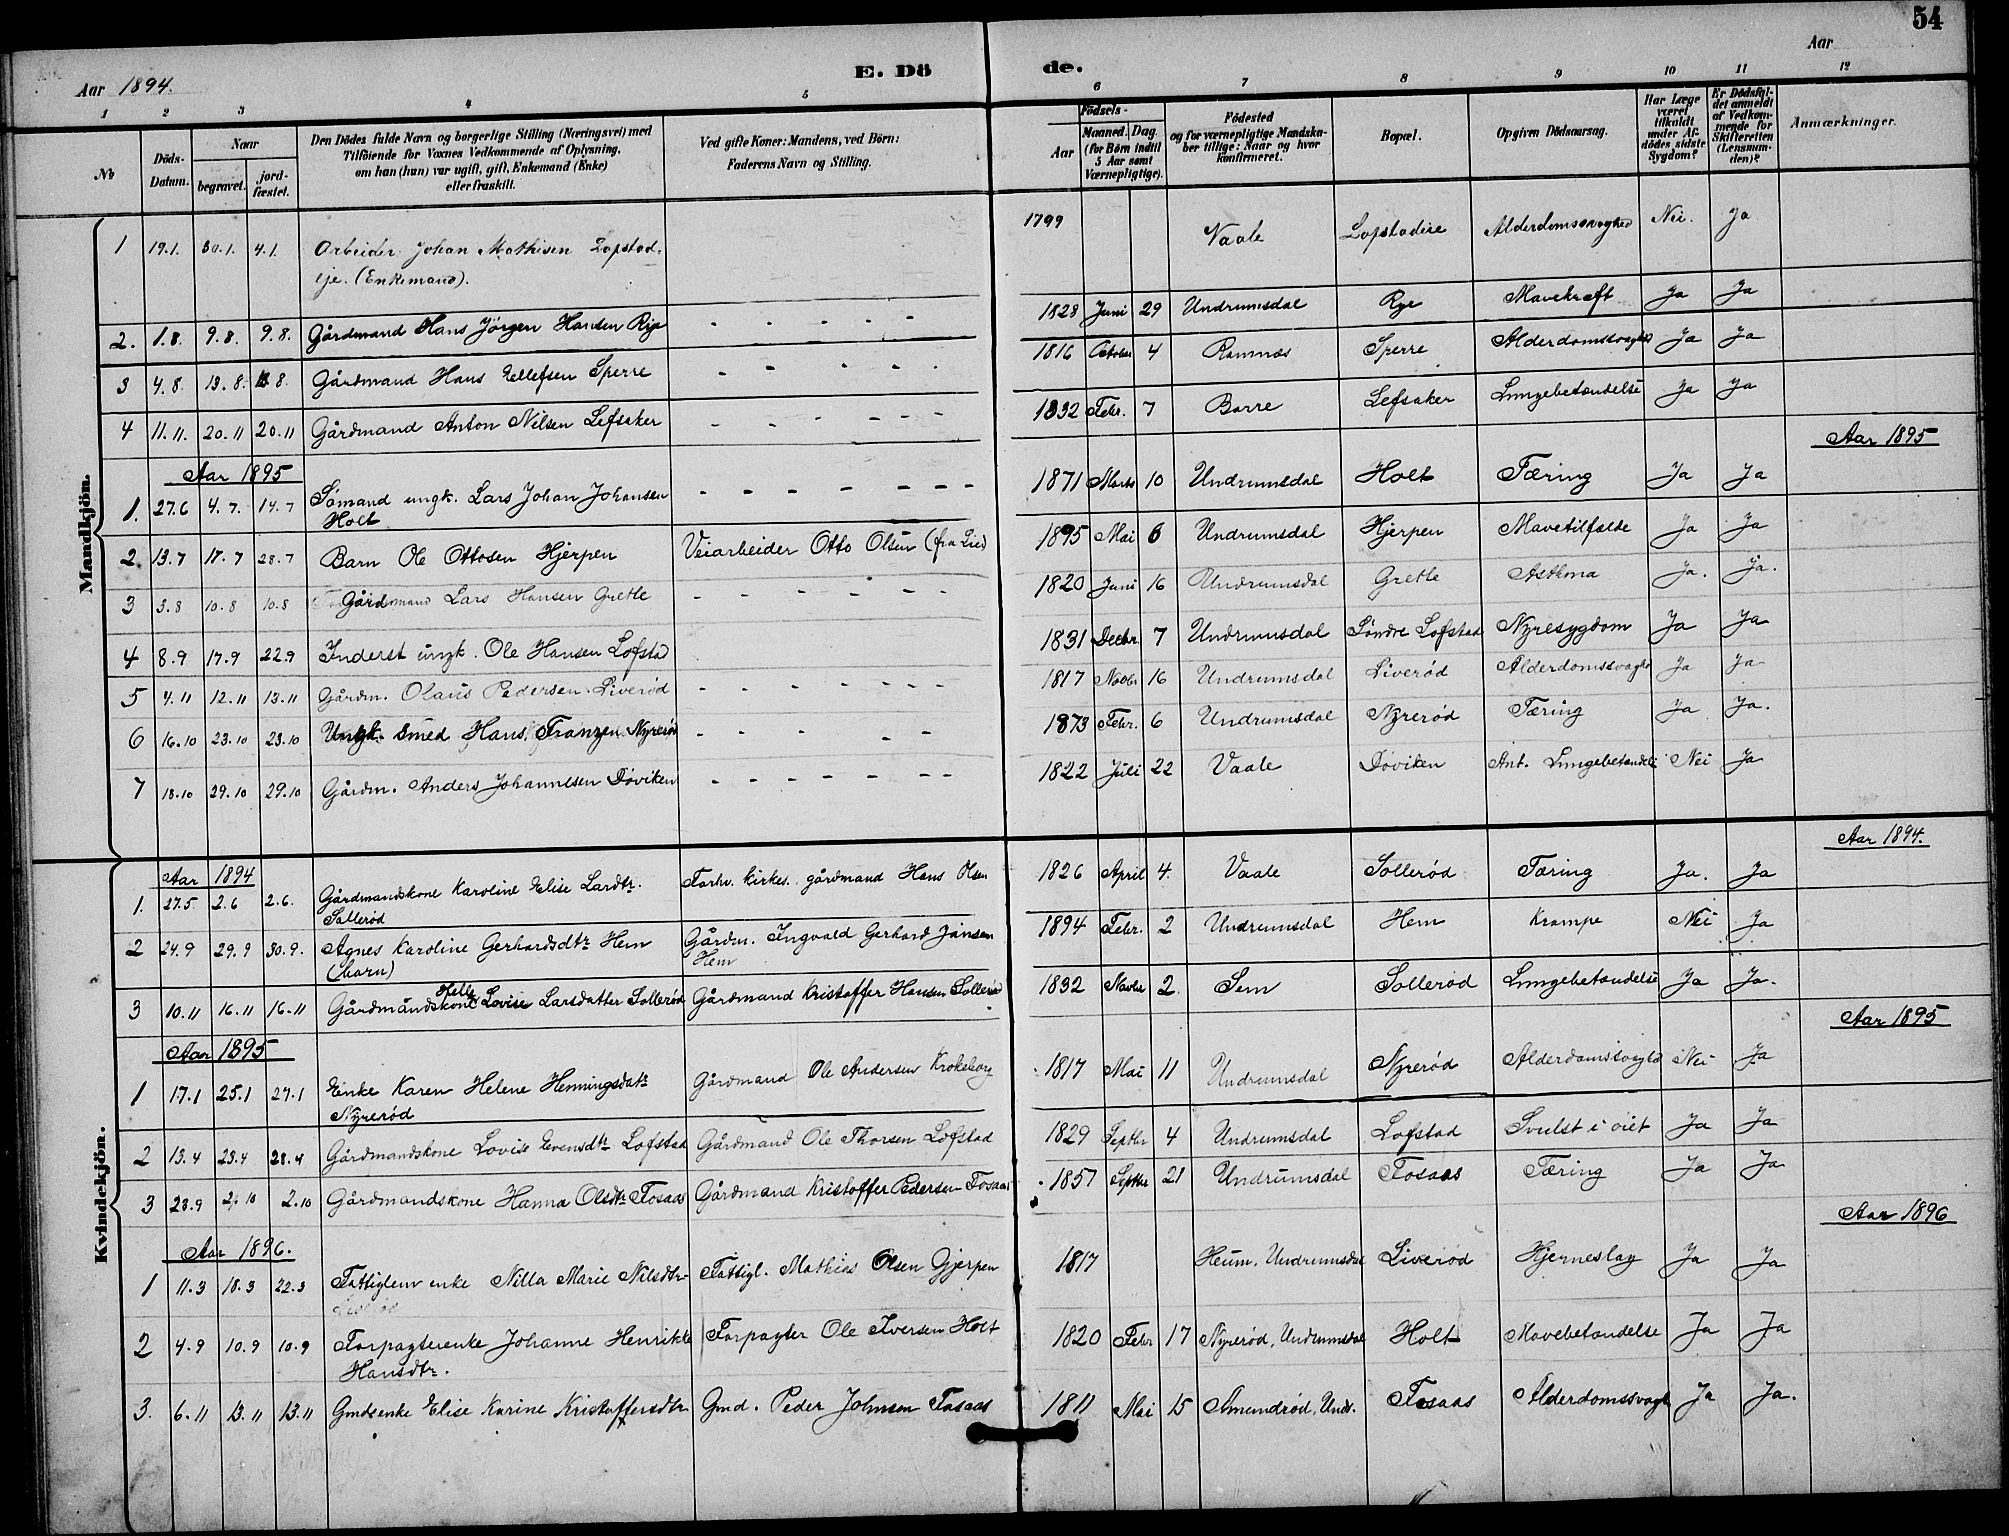 54
Aar 1894.
E. Dö de.
Aar
1 2 3 4 5 6 7 8 9 10 11 12
№
Döds-Datum.
Naar
begravet.
jord-fæstet.
Den Dödes fulde Navn og borgerlige Stilling (Næringsvei) med
Tilföiende for Voxnes Vedkommende af Oplysning,
om han (hun) var ugift, gift, Enkemand (Enke)
eller fraskilt.
Ved gifte Koner: Mandens, ved Börn:
Faderens Navn og Stilling.
Födsels-
Aar
Maaned. Dag.
(for Börn indtil
5 Aar samt
Værnepligtige).
Födested
og for værnepligtige Mandska-
ber tillige: Naar og hvor
konfirmeret.
Bopæl.
Opgiven Dödsaarsag.
Har Læge
været
tilkaldt
under Af-
dödes sidste
Sygdom?
Er Dödsfal-
det anmeldt
af Vedkom-
mende for
Skifteretten
(Lensman-
den)?
Anmærkninger.
Mandkjön.
1 19.1. 30.1. 4.1. Arbeider Johan Mathisen Lofstad- 1799 Vaale Lofstadeie Alderdomssvaghed Nei. Ja
eje. (Enkemand).
2. 1.8. 9.8. 9.8. Gårdmand Hans Jörgen Hansen Rye - - - - - 1828 Juni 29 Undrumsdal Rye Mavekræft Ja Ja
3 4.8. 13.8. 13.8. Gårdmand Hans Ellefsen Sperre - - - - 1816 October 4 Ramnæs Sperre Alderdomssvaghed Ja Ja
4 11.11. 20.11 20.11 Gårdmand Anton Nilsen Lefsaker - - - - - 1832 Febr. 7 Borre Lefsaker Lungebetændelse Ja Ja
Aar 1895 Aar 1895
1. 27.6 4.7. 14.7 Sömand ungk. Lars Johan Johansen - - - - - - - 1871 Marts 10 Undrumsdal Holt Tæring Ja Ja
Holt
2. 13.7 17.7 28.7 Barn Ole Ottosen Hjerpen Veiarbeider Otto Olsen (fra Lier) 1895 Mai 6 Undrumsdal Hjerpen Mavetilfælde Ja Ja
3 3.8 10.8 10.8 Gårdmand Lars Hansen Gretle - - - - - - 1820 Juni 16 Undrumsdal Gretle Asthma Ja. Ja.
4 8.9 17.9 22.9 Inderst ungk. Ole Hansen Lofstad 1831 Decbr. 7 Undrumsdal Söndre Lofstad Nyresygdom Ja Ja
5 4.11 12.11 13.11 Gårdm. Olaus Pedersen Liveröd - - - - - - 1817 Novbr 16 Undrumsdal Liveröd Alderdomssvaghd Ja Ja
6 16.10 23.10 23.10 Ungk. Smed Hans Franzen Nyreröd - - - - - 1873 Febr. 6 Undrumsdal Nyreröd Tæring Ja Ja.
7 18.10 29.10 29.10 Gårdm. Anders Johannesen Döviken - - - - - - 1822 Juli 22 Vaale Döviken Ant. Lungebetændelse Nei Ja
Kvindekjön.
Aar 1894 Aar 1894.
1. 27.5 2.6 2.6. Gårdmandskone Karoline Elise Larsdtr. Forhv. Kirkes. gårdmand Hans Olsen 1826 April 4 Vaale Solleröd Tæring Ja. Ja
Solleröd
2 24.9 29.9 30.9. Agnes Karoline Gerhardsdtr Hem Gårdm. Ingvald Gerhard Jansen 1894 Febr. 2 Undrumsdal Hem Krampe Nei Ja
(barn) Hem
3 10.11 16.11 16.11 Gårdmandskone Helle Lovise Larsdatter Solleröd Gårdmand Kristoffer Hansen Solleröd 1832 Novbr 2. Sem Solleröd Lungebetændelse Ja Ja.
Aar 1895 Aar 1895
1 17.1 25.1 27.1 Enke Karen Helene Henningsdatr Gårdmand Ole Andersen Krokeborg 1817 Mai 11 Undrumsdal Nyreröd Alderdomssvaghd Nei Ja
Nyreröd
2 13.4 23.4 28.4 Gårdmandskone Lovise Evensdtr Lofstad Gårdmand Ole Thorsen Lofstad 1829 Septbr 4 Undrumsdal Lofstad Svulst i öiet Ja Ja
3 23.9 2.10 2.10 Gårdmandskone Hanna Olsdtr Fosaas Gårdmand Kristoffer Pedersen Fosaas 1857 Septbr 21 Undrumsdal Fosaas Tæring Ja Ja
Aar 1896. Aar 1896
1 11.3 18.3 22.3 Fattiglem enke Nilla Marie Nilsdtr Fattigl. Mathias Olsen Gjerpen 1817 Heum, Undrumsdal Liveröd Hjerneslag Ja Ja
Liveröd
2 4.9 10.9 10.9 Forpagterenke Johanne Henrikke Forpagter Ole Iversen Holt 1820 Febr 17 Nyreröd, Undrumsdal Holt Mavebetændelse Ja Ja
Hansdtr.
3. 6.11 13.11 13.11 Gmdsenke Elise Karine Kristoffersdtr Gmd. Peder Johnsen Fosaas 1811 Mai 15 Amundröd, Undr. Fosaas Alderdomssvagh Ja Ja.